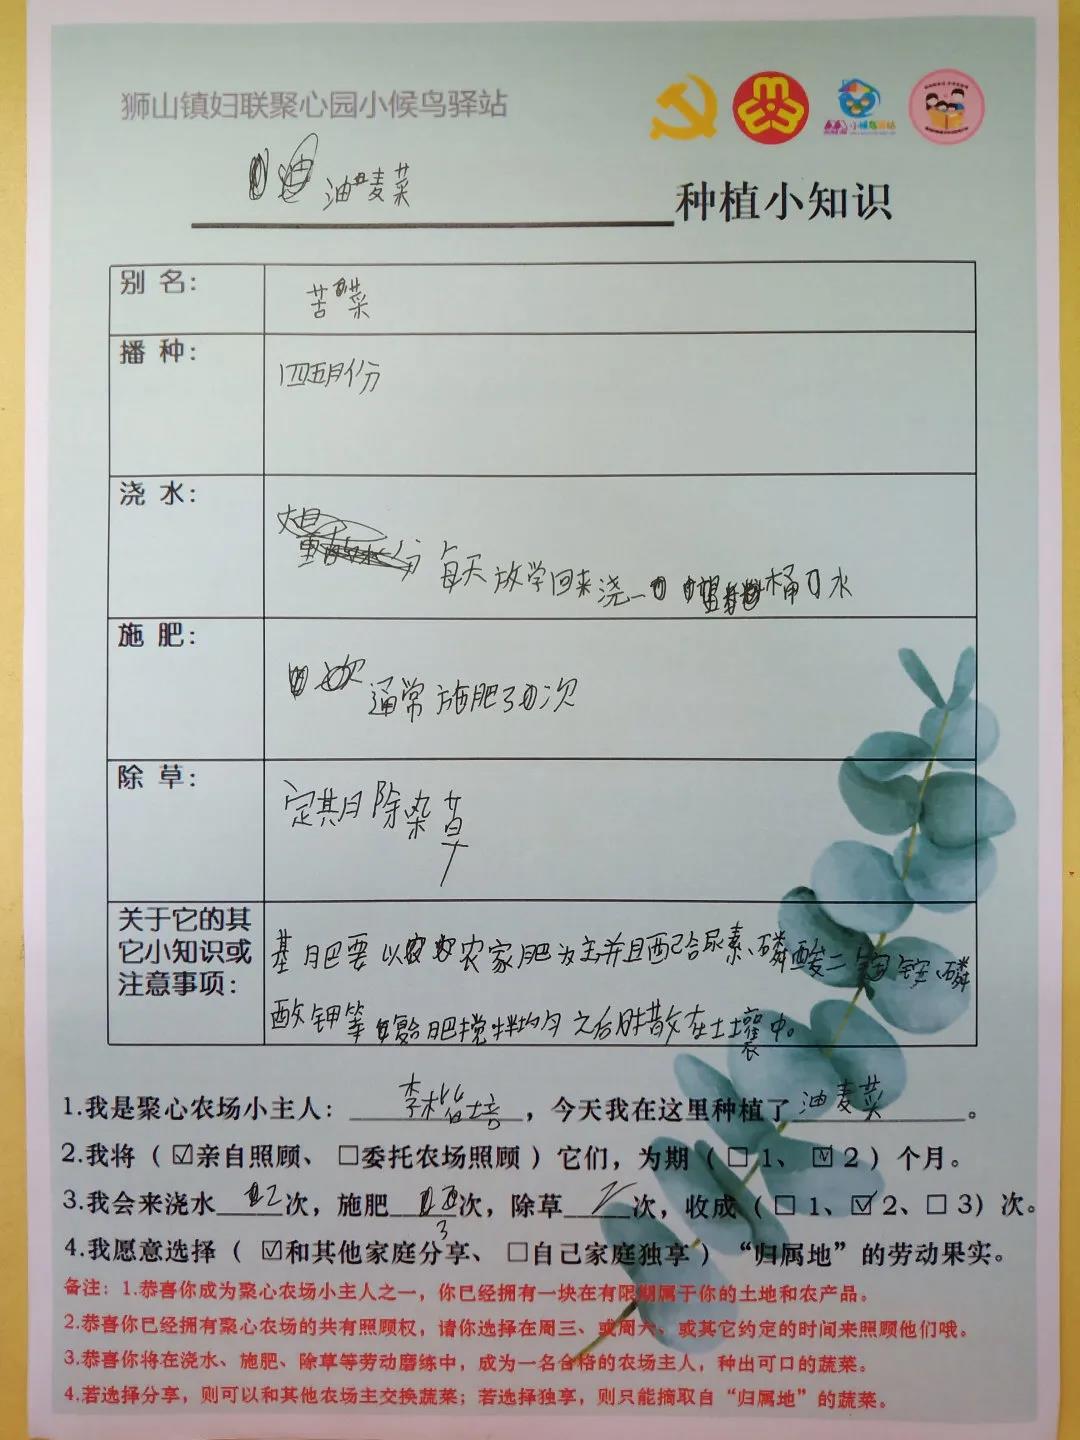 狮山镇妇联聚心园小候鸟驿站
小候鸟驿站
油麦菜 种植小知识
别 名：
苦菜
播 种：
四五月份
浇 水：
大量 水分 每天放学回来浇一桶水
施 肥：
通常施肥3次
除 草：
定期除染草
关于它的其
它小知识或
注意事项：
基肥要以农家肥为主并且配合尿素、磷酸二铵、磷
酸钾等复合肥搅拌均匀之后肘散在土壤中。
1.我是聚心农场小主人：李 培，今天我在这里种植了油麦菜。
2.我将（☑亲自照顾、☐委托农场照顾）它们，为期（☐1、☑2）个月。
3.我会来浇水 2次，施肥3次，除草2次，收成（☐1、☑2、☐3）次。
4.我愿意选择（☑和其他家庭分享、☐自己家庭独享）“归属地”的劳动果实。
备注：1.恭喜你成为聚心农场小主人之一，你已经拥有一块在有限期属于你的土地和农产品。
2.恭喜你已经拥有聚心农场的共有照顾权，请你选择在周三、或周六、或其它约定的时间来照顾他们哦。
3.恭喜你将在浇水、施肥、除草等劳动磨练中，成为一名合格的农场主人，种出可口的蔬菜。
4.若选择分享，则可以和其他农场主交换蔬菜；若选择独享，则只能摘取自“归属地”的蔬菜。